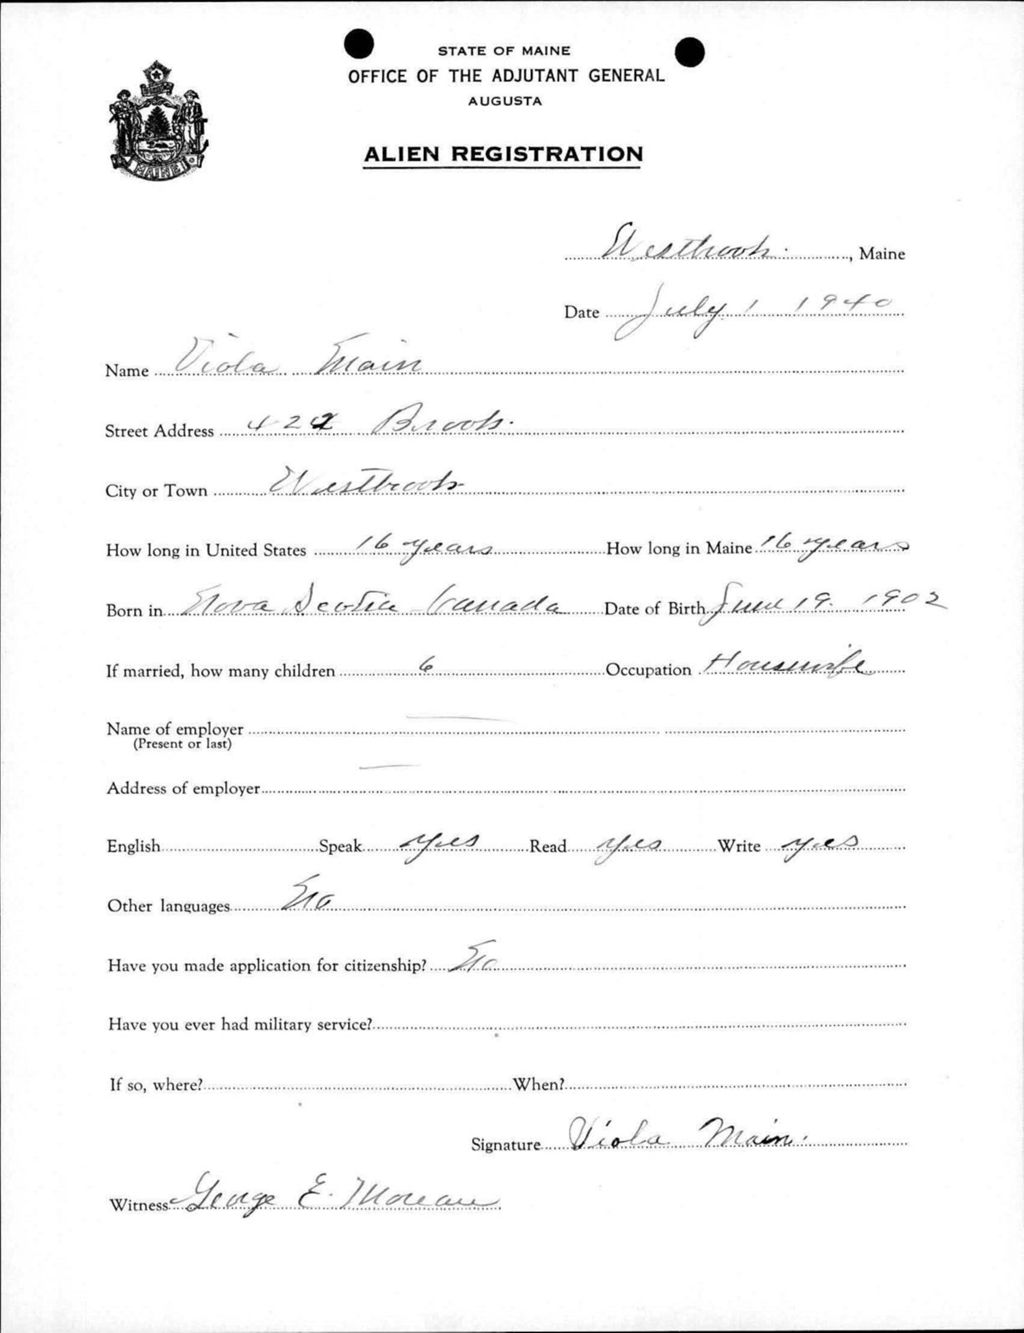 STATE OF MAINE
OFFICE OF THE ADJUTANT GENERAL
AUGUSTA
ALIEN REGISTRATION
MAINE
Westbrook, Maine
Date July 1 1940
Name Viola Main
Street Address 422 Brook.
City or Town Westbrook
How long in United States 16 years How long in Maine 16 years
Born in Nova Scotia Canada Date of Birth June 19. 1902
If married, how many children 6 Occupation Housewife
Name of employer
(Present or last)
Address of employer
English Speak yes Read yes Write yes
Other languages No
Have you made application for citizenship? No
Have you ever had military service?
If so, where? When?
Signature Viola Main.
Witness George E. Moreau